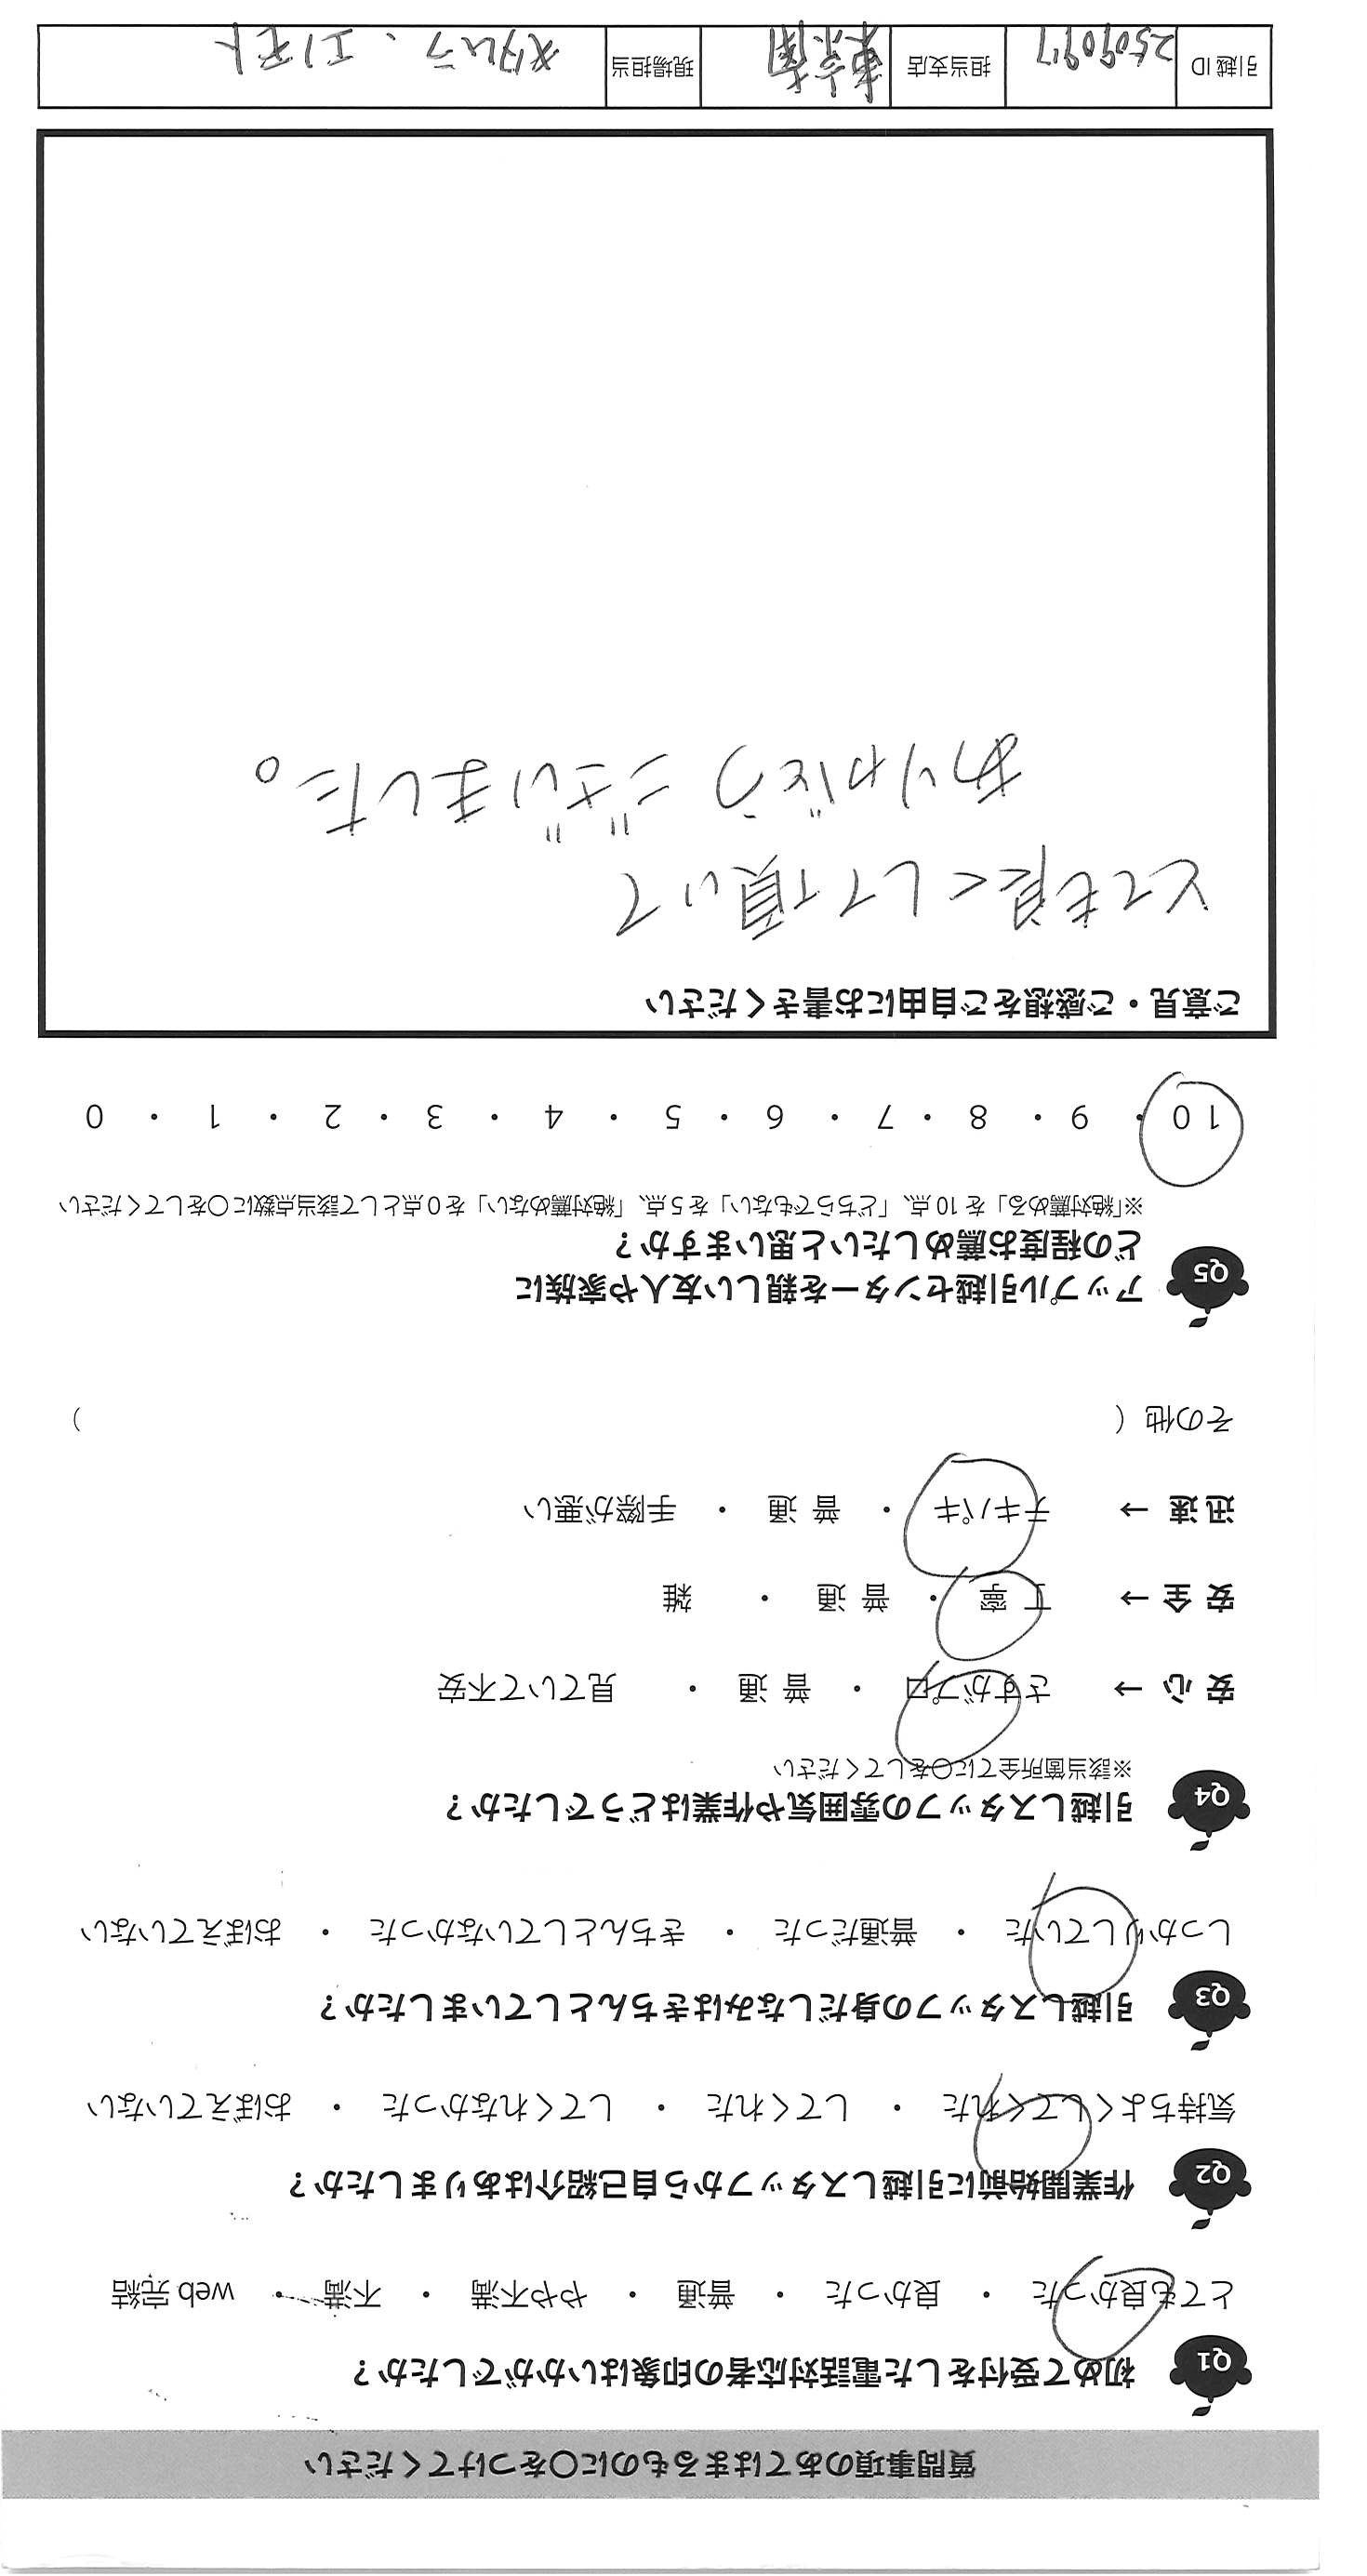 質問事項のあてはまるものに○をつけてください
Q1 初めて受付をした電話対応者の印象はいかがでしたか？
とても良かった ・ 良かった ・ 普通 ・ やや不満 ・ 不満 ・ web 完結
Q2 作業開始前に引越しスタッフから自己紹介はありましたか？
気持ちよくしてくれた ・ してくれた ・ してくれなかった ・ おぼえていない
Q3 引越しスタッフの身だしなみはきちんとしていましたか？
しっかりしていた ・ 普通だった ・ きちんとしていなかった ・ おぼえていない
Q4 引越しスタッフの雰囲気や作業はどうでしたか？
※該当箇所全てに○をしてください
安 心 → さすがプロ ・ 普 通 ・ 見ていて不安
安 全 → 丁 寧 ・ 普 通 ・ 雑
迅 速 → テキパキ ・ 普 通 ・ 手際が悪い
その他（ ）
Q5 アップル引越センターを親しい友人や家族に
どの程度お薦めしたいと思いますか？
※「絶対薦める」を 10 点、「どちらでもない」を 5 点、「絶対薦めない」を 0 点として該当点数に○をしてください
10 ・ 9 ・ 8 ・ 7 ・ 6 ・ 5 ・ 4 ・ 3 ・ 2 ・ 1 ・ 0
ご意見・ご感想をご自由にお書きください
とても良くして頂いて
ありがとうございました。
引越 ID 2509097 担当支店 東京南 現場担当 エノモト